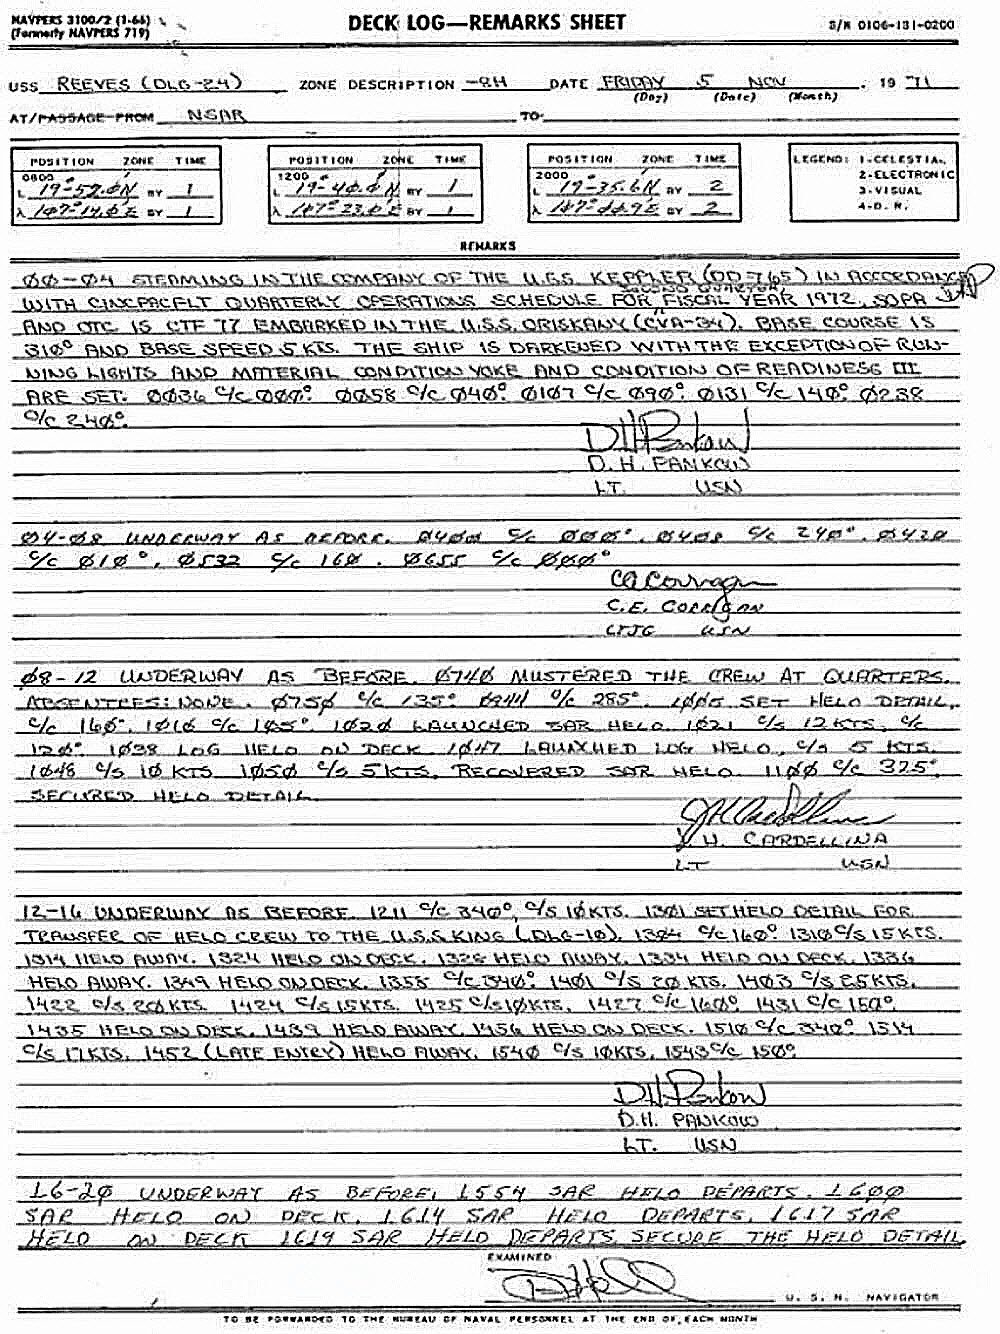 NAVPERS 3100/2 (1-66)
(Formerly NAVPERS 719)
DECK LOG—REMARKS SHEET
S/N 0106-131-0200
USS REEVES (DLG-24) ZONE DESCRIPTION -8H DATE FRIDAY 5 NOV, 19 71
(Day) (Date) (Month)
AT/PASSAGE FROM NSAR TO
POSITION ZONE TIME POSITION ZONE TIME POSITION ZONE TIME LEGEND: 1-CELESTIAL
0800 1200 2000 2-ELECTRONIC
L 19-52.0N BY 1 L 19-40.0N BY 1 L 19-35.6N BY 2 3-VISUAL
λ 107-14.0E BY 1 λ 107-23.0E BY 1 λ 107-44.9E BY 2 4-D. R.
REMARKS
00-04 STEAMING IN THE COMPANY OF THE U.S.S. KEPPLER (DD-765) IN ACCORDANCE
SECOND QUARTER
WITH CINCPACFLT QUARTERLY OPERATIONS SCHEDULE FOR FISCAL YEAR 1972. SOPA
AND OTC IS CTF 77 EMBARKED IN THE U.S.S. ORISKANY (CVA-34). BASE COURSE IS
310° AND BASE SPEED 5 KTS. THE SHIP IS DARKENED WITH THE EXCEPTION OF RUN-
NING LIGHTS AND MATERIAL CONDITION YOKE AND CONDITION OF READINESS III
ARE SET. 0036 C/C 000°. 0058 C/C 040°. 0107 C/C 090°. 0131 C/C 140°. 0238
C/C 240°.
D.H. Pankow
D. H. PANKOW
LT. USN
04-08 UNDERWAY AS BEFORE. 0400 C/C 000°. 0408 C/C 240°. 0420
C/C 010°. 0532 C/C 160. 0655 C/C 000°
CE Corrigan
C.E. CORRIGAN
LTJG USN
08-12 UNDERWAY AS BEFORE. 0740 MUSTERED THE CREW AT QUARTERS.
ABSENTEES: NONE. 0750 C/C 135° 0944 C/C 285°. 1006 SET HELO DETAIL,
C/C 160°. 1016 C/C 165° 1020 LAUNCHED SAR HELO 1021 C/S 12 KTS, C/C
120° 1038 LOG HELO ON DECK 1047 LAUNCHED LOG HELO, C/S 5 KTS.
1048 C/S 10 KTS 1050 C/S 5 KTS, RECOVERED SAR HELO 1100 C/C 325°
SECURED HELO DETAIL.
J H Cardellina
J. H. CARDELLINA
LT USN
12-16 UNDERWAY AS BEFORE. 1211 C/C 340°, C/S 10 KTS. 1301 SET HELO DETAIL FOR
TRANSFER OF HELO CREW TO THE U.S.S. KING (DLG-10). 1304 C/C 160° 1310 C/S 15 KTS.
1314 HELO AWAY. 1324 HELO ON DECK. 1326 HELO AWAY. 1334 HELO ON DECK. 1336
HELO AWAY. 1349 HELO ON DECK. 1358 C/C 340°. 1401 C/S 20 KTS. 1403 C/S 25 KTS.
1422 C/S 20 KTS. 1424 C/S 15 KTS. 1425 C/S 10 KTS. 1427 C/C 160° 1431 C/C 150°
1435 HELO ON DECK. 1439 HELO AWAY. 1456 HELO ON DECK. 1510 C/C 340° 1514
C/S 17 KTS. 1452 (LATE ENTRY) HELO AWAY. 1540 C/S 10 KTS. 1543 C/C 150°
D.H. Pankow
D.H. PANKOW
LT. USN
16-20 UNDERWAY AS BEFORE, 1554 SAR HELO DEPARTS. 1600
SAR HELO ON DECK. 1614 SAR HELO DEPARTS. 1617 SAR
HELO ON DECK 1619 SAR HELO DEPARTS SECURE THE HELO DETAIL
EXAMINED
U. S. N. NAVIGATOR
TO BE FORWARDED TO THE BUREAU OF NAVAL PERSONNEL AT THE END OF EACH MONTH